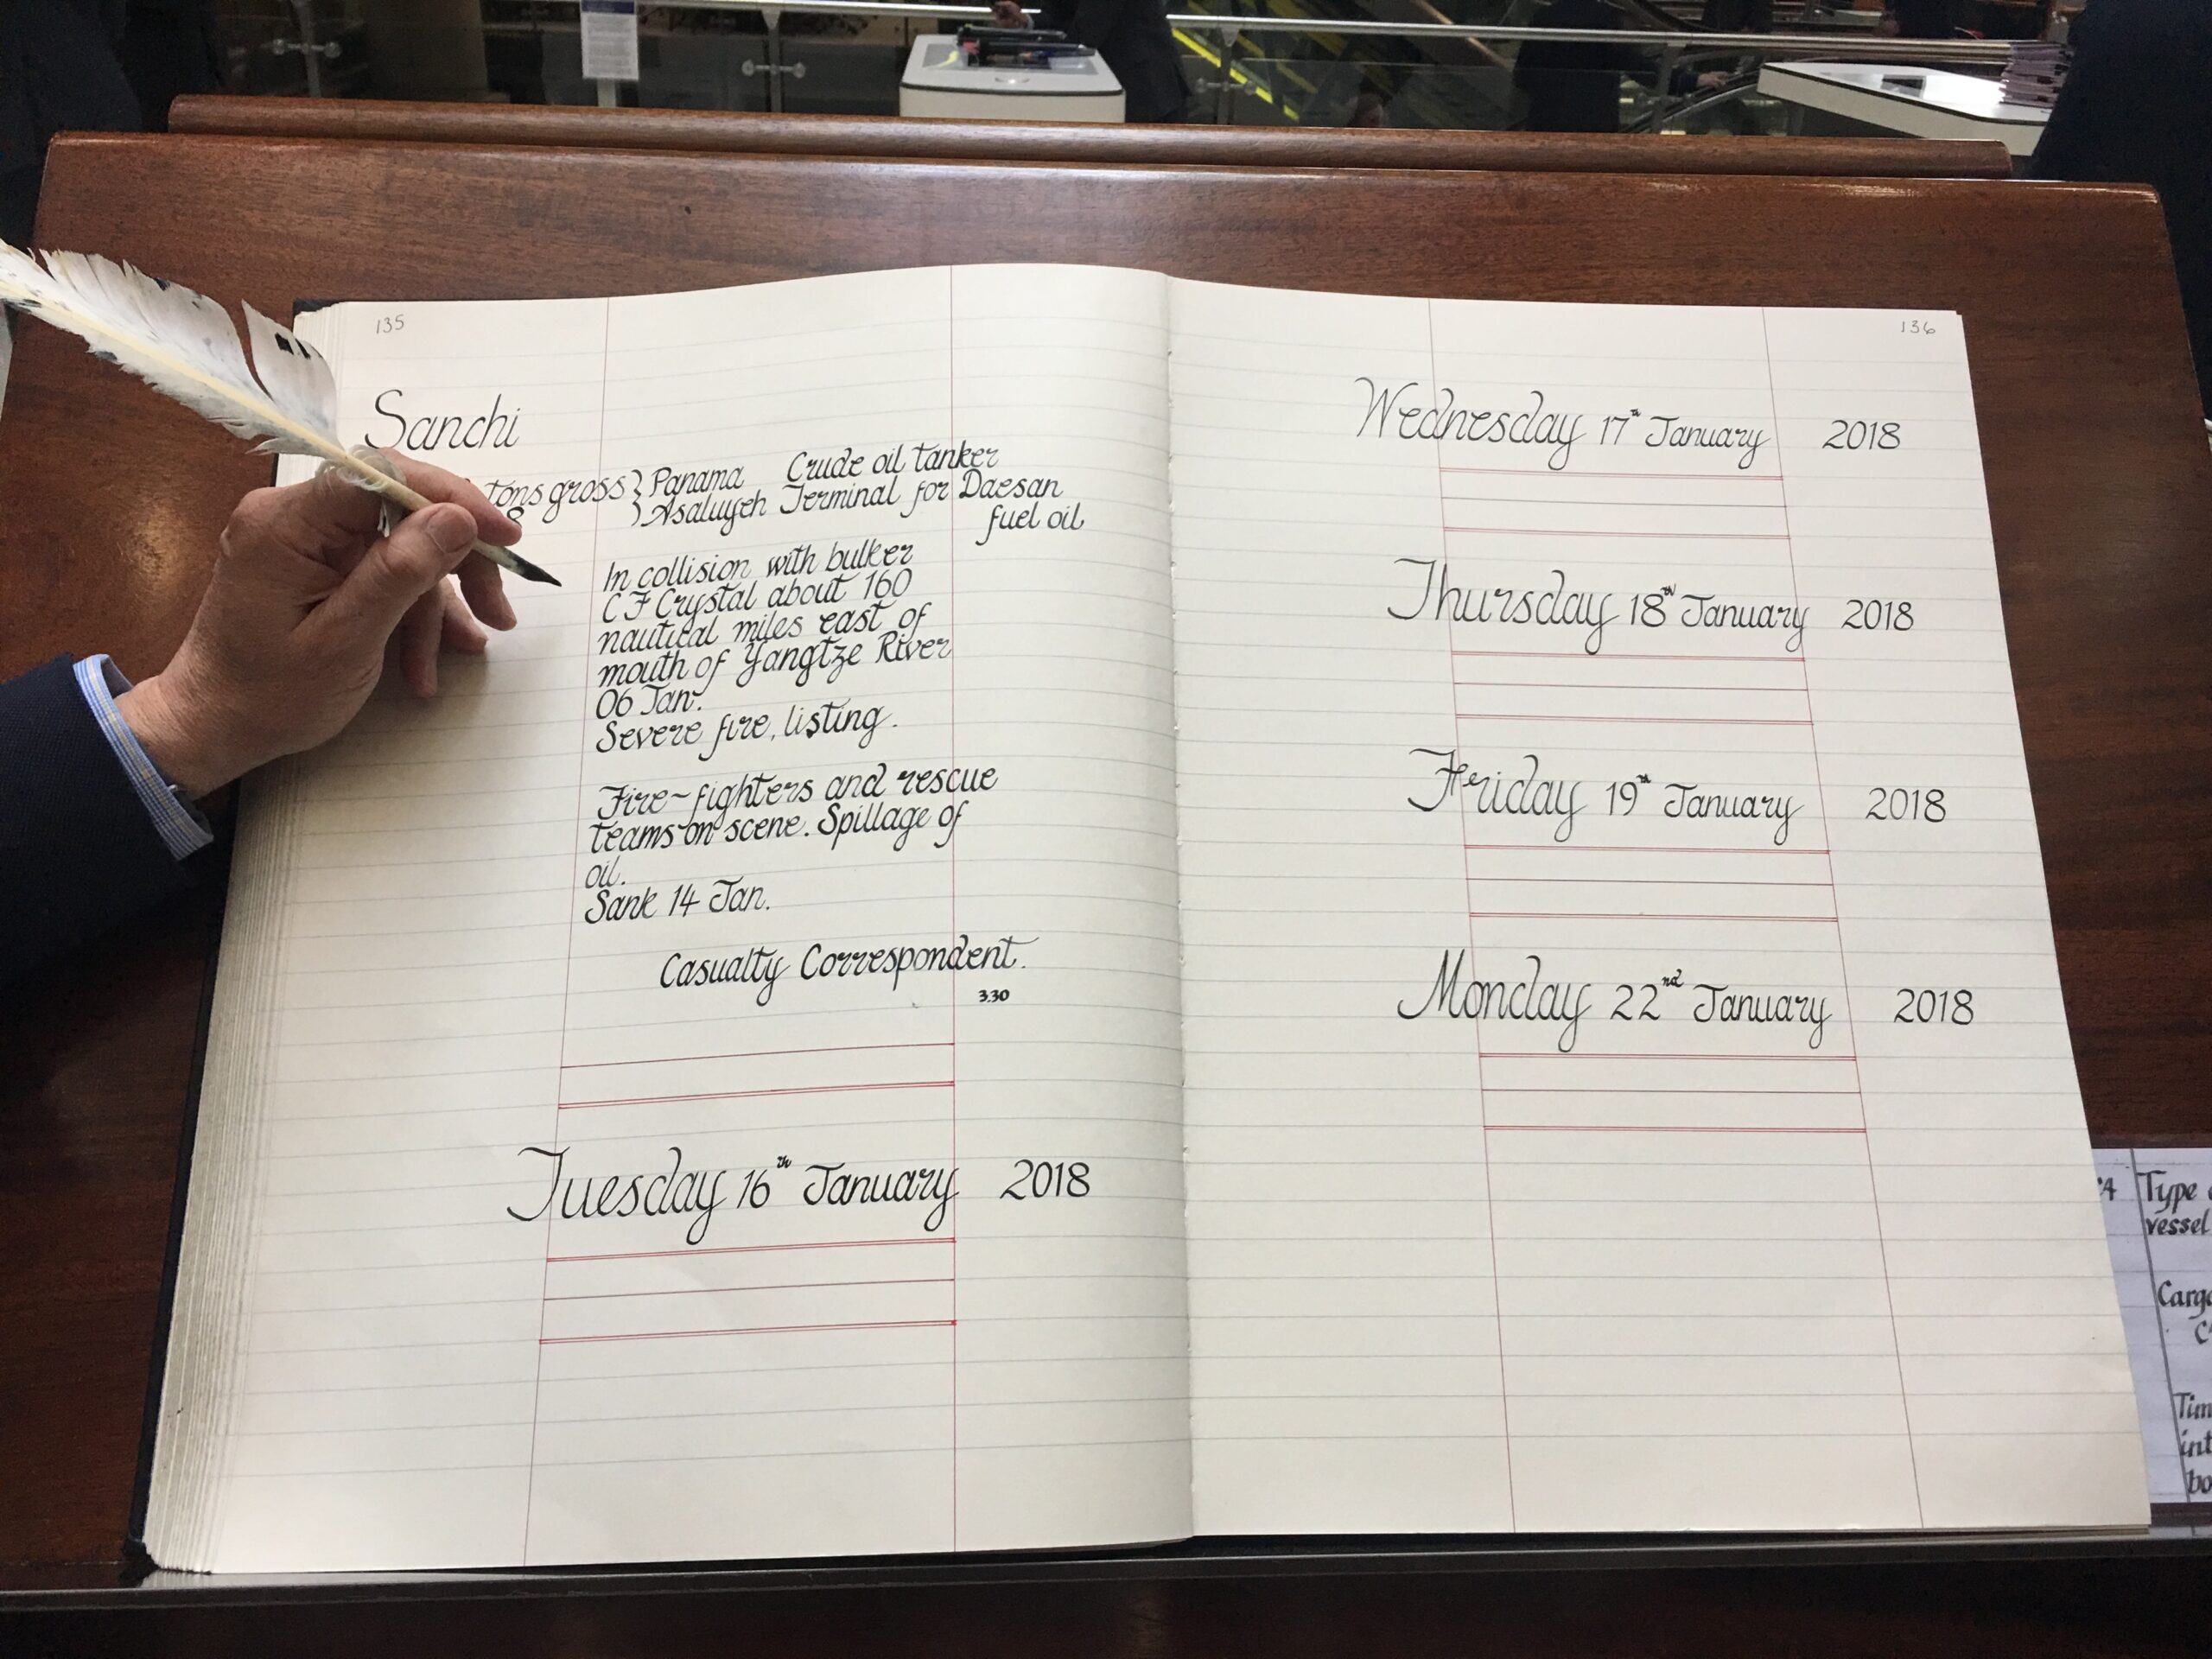 135
Sanchi
tons gross } Panama Crude oil tanker
8 } Asaluyeh Terminal for Daesan
fuel oil
In collision with bulker
CF Crystal about 160
nautical miles east of
mouth of Yangtze River
06 Jan.
Severe fire, listing.
Fire-fighters and rescue
teams on scene. Spillage of
oil.
Sank 14 Jan.
Casualty Correspondent.
3.30
Tuesday 16th January 2018
136
Wednesday 17th January 2018
Thursday 18th January 2018
Friday 19th January 2018
Monday 22nd January 2018
Type
vessel